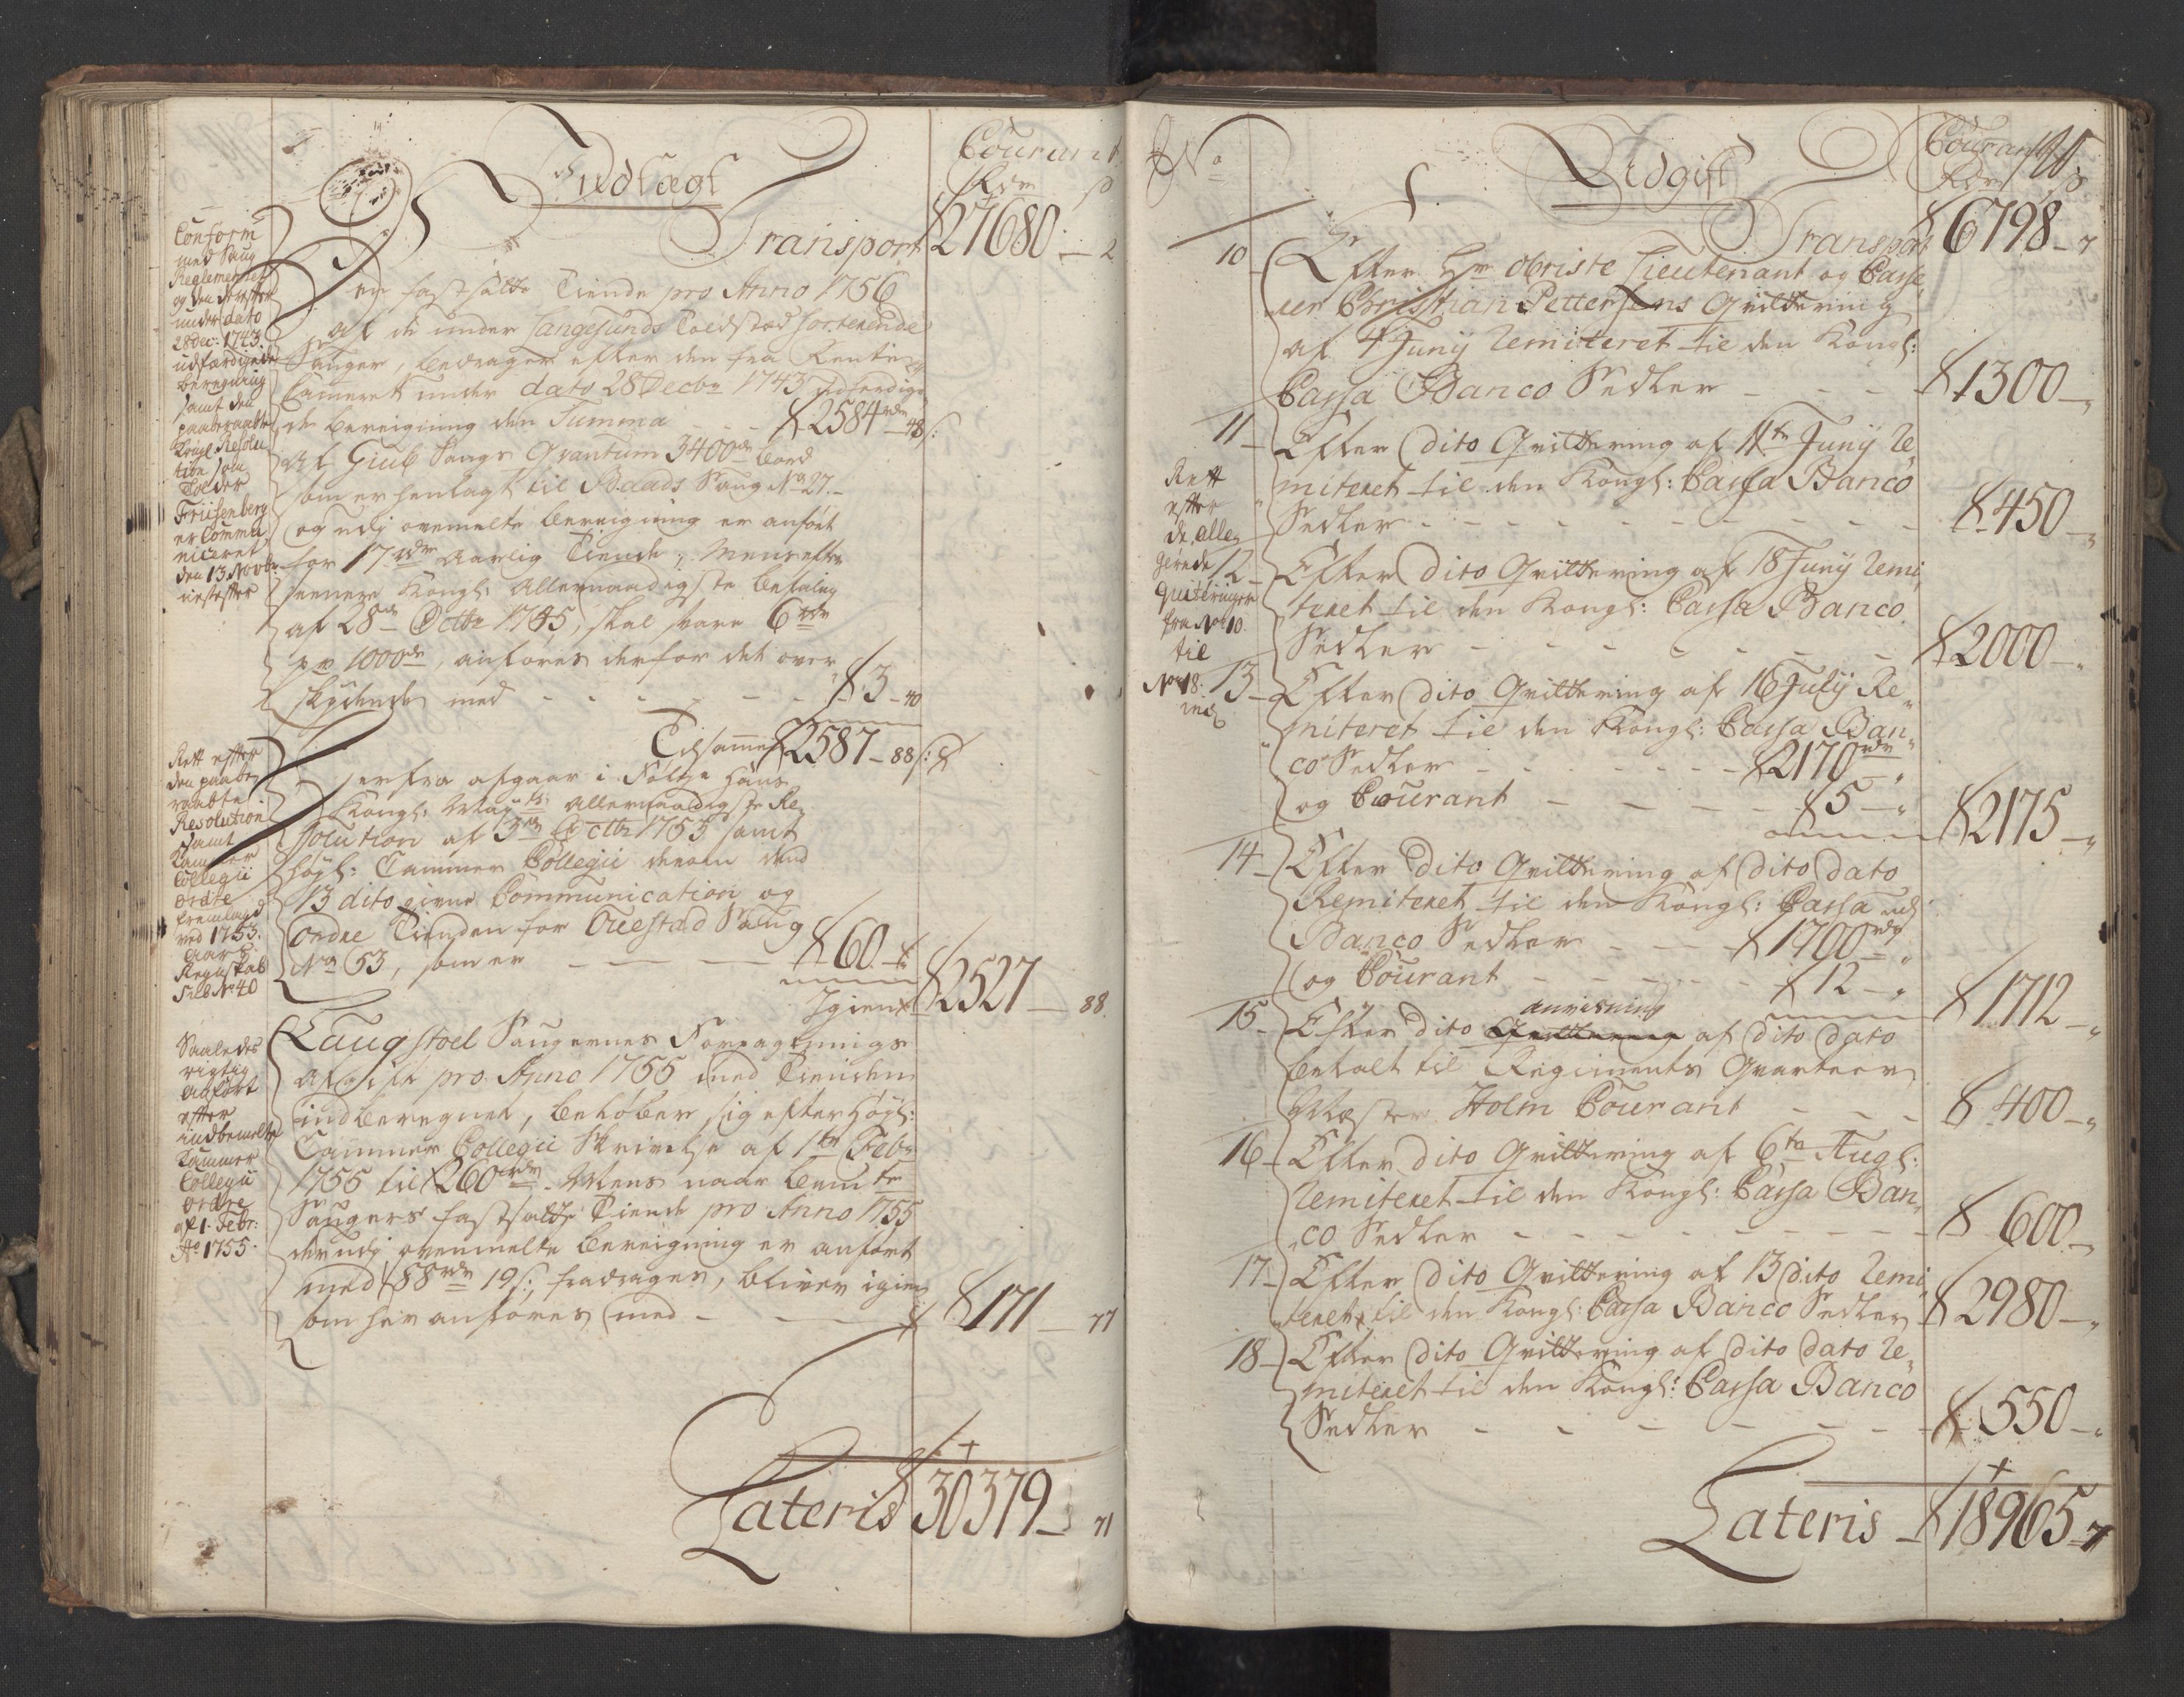 Indtægt
Courant
Rdr ß
Transport 27680 – 2
Conform
med Saug
Reglementet
og den derefter
under dato
28 Dec: 1743
udfærdigede
beregning
samt den
paaberaabte
Kongl Resolu
tion som
Tolder
Friisenberg
er Commu
niceret
den 13 Novbr
nestefter
Den fastsatte Tiende pro Anno 1756
af de under Langesunds Toldsted sorterende
Sauger, bedrager efter den fra Rente
Cameret under dato 28 Decbr 1743 udferdige
de beregning den Summa - - 2584 rdr 48 ß:
Af Giub Saugs Qvantum 3400 de bord
som er henlagt til Baads Saug No 27.
og udj ovenmelte beregning er anført
for 17 rdr Aarlig Tiende, Mens efter
senere Kongl: Allernaadigste befaling
af 28de Octbr 1745, skal svare 6 rdr
pr 1000de, anføres derfor det over
skydende med - - - - - 3 – 40
Tilsammen 2587 – 88 ß:
Rett effter
den paabe
raabte
Resolution
samt
Kammer
Collegii
ordre
fremlagd
ved 1753
aars
Regnskab
sub No 40
Herfra afgaar i Følge Hans
Kongl: Mayts: Allernaadigste Re
solution af 3de Octbr 1753 samt
høyl: Cammer Collegii derom dend
13 dito givne Communication og
Ordre Tienden for Ouestad Saug
No 53, som er - - - 60 –
Igien 2527 – 88.
Saaledes
rigtig
Anført
effter
indbemelte
Kammer
Collegii
ordre
af 1. Febr:
Ao 1755.
Laugstoel Saugernes Forpagtnings
Afgift pro Anno 1755 med Tienden
indberegnet, beløber sig efter Høyl:
Cammer Collegii Skrivelse af 1te Febr
1755 til 260 rdr. Mens naar bemte
Saugers fastsatte Tiende pro Anno 1755
der udj ovenmelte beregning er anført
med 88 rdr 19 ß:, fradrages, bliver igien
som her anføres med - - - 171 – 77
Lateris 30379 – 71
No
Udgift
Courant
Rdr ß
Transport 6798 – 7
10 Efter Hr Obriste Lieutenant og Casse
rer Christian Pettersens Qvittering
af 4 Junij Remitteret til den Kongl:
Cassa Banco Sedler - - - 1300 –
11 Efter dito Qvittering af 11te Junij Re
miteret til den Kongl: Cassa Banco
Sedler - - - - - - 450 –
Rett
effter
de alle
gerede
Quiteringer
fra No 10.
til
No 18.
incl
12 Efter dito Qvittering af 18 Junij Remi
teret til den Kongl: Cassa Banco
Sedler - - - - - - 2000 –
13 Efter dito Qvittering af 16 July Re
miteret til den Kongl: Cassa Ban
co Sedler - - - - - 2170 rdr –
og Courant - - - - 5 – 2175 –
14 Efter dito Qvittering af dito dato
Remiteret til den Kongl: Cassa udj
Banco Sedler - - - 1700 rdr
og Courant - - - - 12 – 1712 –
15 Efter dito anvisning af dito dato
betalt til Regiments Qvarteer
Mæster Holm Courant - - - 400 –
16 Efter dito Qvittering af 6te Aug:
Remiteret til den Kongl: Cassa Ban
co Sedler - - - - - - 600 –
17 Efter dito Qvittering af 13 dito Remi
teret til den Kongl: Cassa Banco Sedler 2980 –
18 Efter dito Qvittering af dito dato Re
miteret til den Kongl: Cassa Banco
Sedler - - - - - - 550 –
Lateris – 18965 – 7